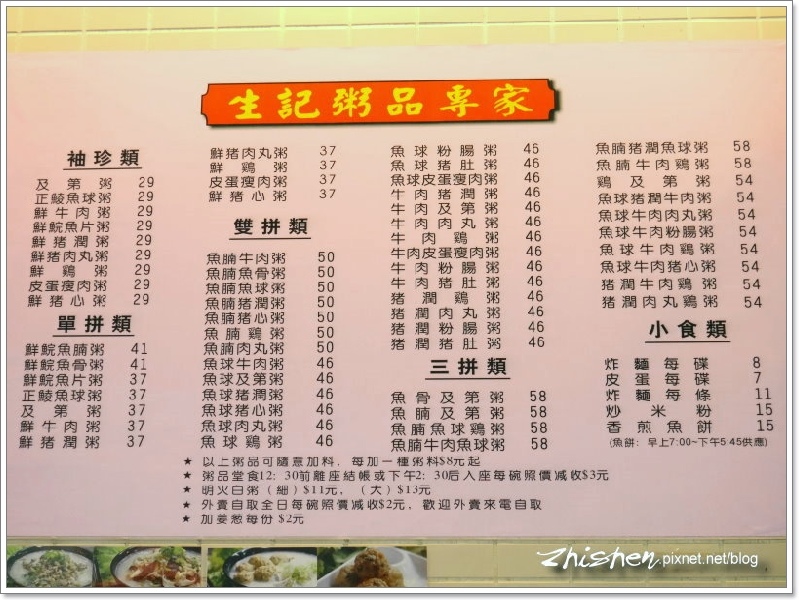 生記粥品專家
袖珍類
及第粥 29
正鯪魚球粥 29
鮮牛肉粥 29
鮮鯇魚片粥 29
鮮豬潤粥 29
鮮豬肉丸粥 29
鮮鷄粥 29
皮蛋瘦肉粥 29
鮮豬心粥 29
單拼類
鮮鯇魚腩粥 41
鮮鯇魚骨粥 41
鮮鯇魚片粥 37
正鯪魚球粥 37
及第粥 37
鮮牛肉粥 37
鮮豬潤粥 37
鮮豬肉丸粥 37
鮮鷄粥 37
皮蛋瘦肉粥 37
鮮豬心粥 37
雙拼類
魚腩牛肉粥 50
魚腩魚骨粥 50
魚腩魚球粥 50
魚腩豬潤粥 50
魚腩豬心粥 50
魚腩鷄粥 50
魚腩肉丸粥 50
魚球牛肉粥 46
魚球及第粥 46
魚球豬潤粥 46
魚球豬心粥 46
魚球肉丸粥 46
魚球鷄粥 46
魚球粉腸粥 46
魚球豬肚粥 46
魚球皮蛋瘦肉粥 46
牛肉豬潤粥 46
牛肉及第粥 46
牛肉肉丸粥 46
牛肉鷄粥 46
牛肉皮蛋瘦肉粥 46
牛肉粉腸粥 46
牛肉豬肚粥 46
豬潤鷄粥 46
豬潤肉丸粥 46
豬潤粉腸粥 46
豬潤豬肚粥 46
三拼類
魚骨及第粥 58
魚腩及第粥 58
魚腩魚球鷄粥 58
魚腩牛肉魚球粥 58
魚腩豬潤魚球粥 58
魚腩牛肉鷄粥 58
鷄及第粥 54
魚球豬潤牛肉粥 54
魚球牛肉肉丸粥 54
魚球牛肉粉腸粥 54
魚球牛肉鷄粥 54
魚球牛肉豬心粥 54
豬潤牛肉鷄粥 54
豬潤肉丸鷄粥 54
小食類
炸麵每碟 8
皮蛋每碟 7
炸麵每條 11
炒米粉 15
香煎魚餅 15
(魚餅：早上7:00~下午5:45供應)
★ 以上粥品可隨意加料，每加一種粥料$8元起
★ 粥品堂食12：30前離座結帳或下午2：30后入座每碗照價減收$3元
★ 明火白粥（細）$11元，（大）$13元
★ 外賣自取全日每碗照價減收$2元，歡迎外賣來電自取
★ 加姜葱每份 $2元
zhishen.pixnet.net/blog